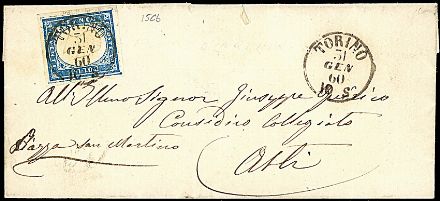 1506
TORINO
31
GEN
60
10 S
TORINO
31
GEN
60
10 S
All'Illmo Signor Giuseppe
Causidico Collegiato
Piazza San Martino
Asti